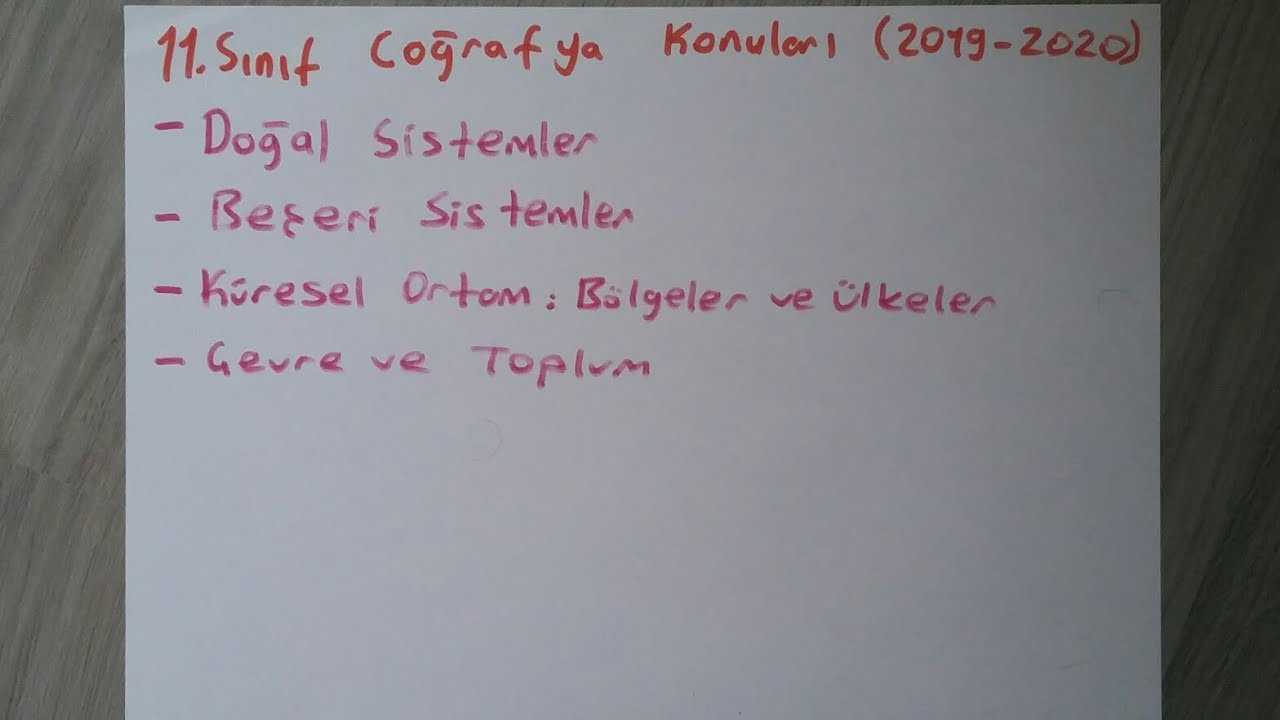 11. Sınıf Coğrafya Konuları (2019-2020)
- Doğal Sistemler
- Beşeri Sistemler
- Küresel Ortam: Bölgeler ve Ülkeler
- Çevre ve Toplum